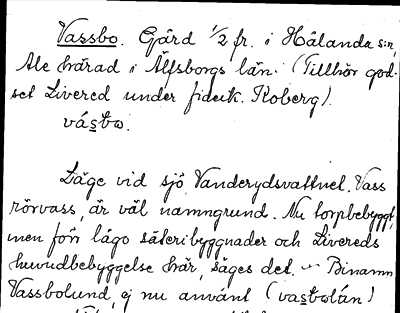 Vassbo. Gård 1/2 fr. i Hålanda s:n,
Ale härad i Älfsborgs län. (Tillhör god-
set Livered under fideik. Koberg).
vástbo.
Läge vid sjö Vanderydsvattnet. Vass
rörvass, är väl namngrund. Nu torpbebyggt,
men förr lågo säteribyggnader och Livereds
huvudbebyggelse här, säges det. — Binamn
Vassbolund, ej nu använt (vastbolún)